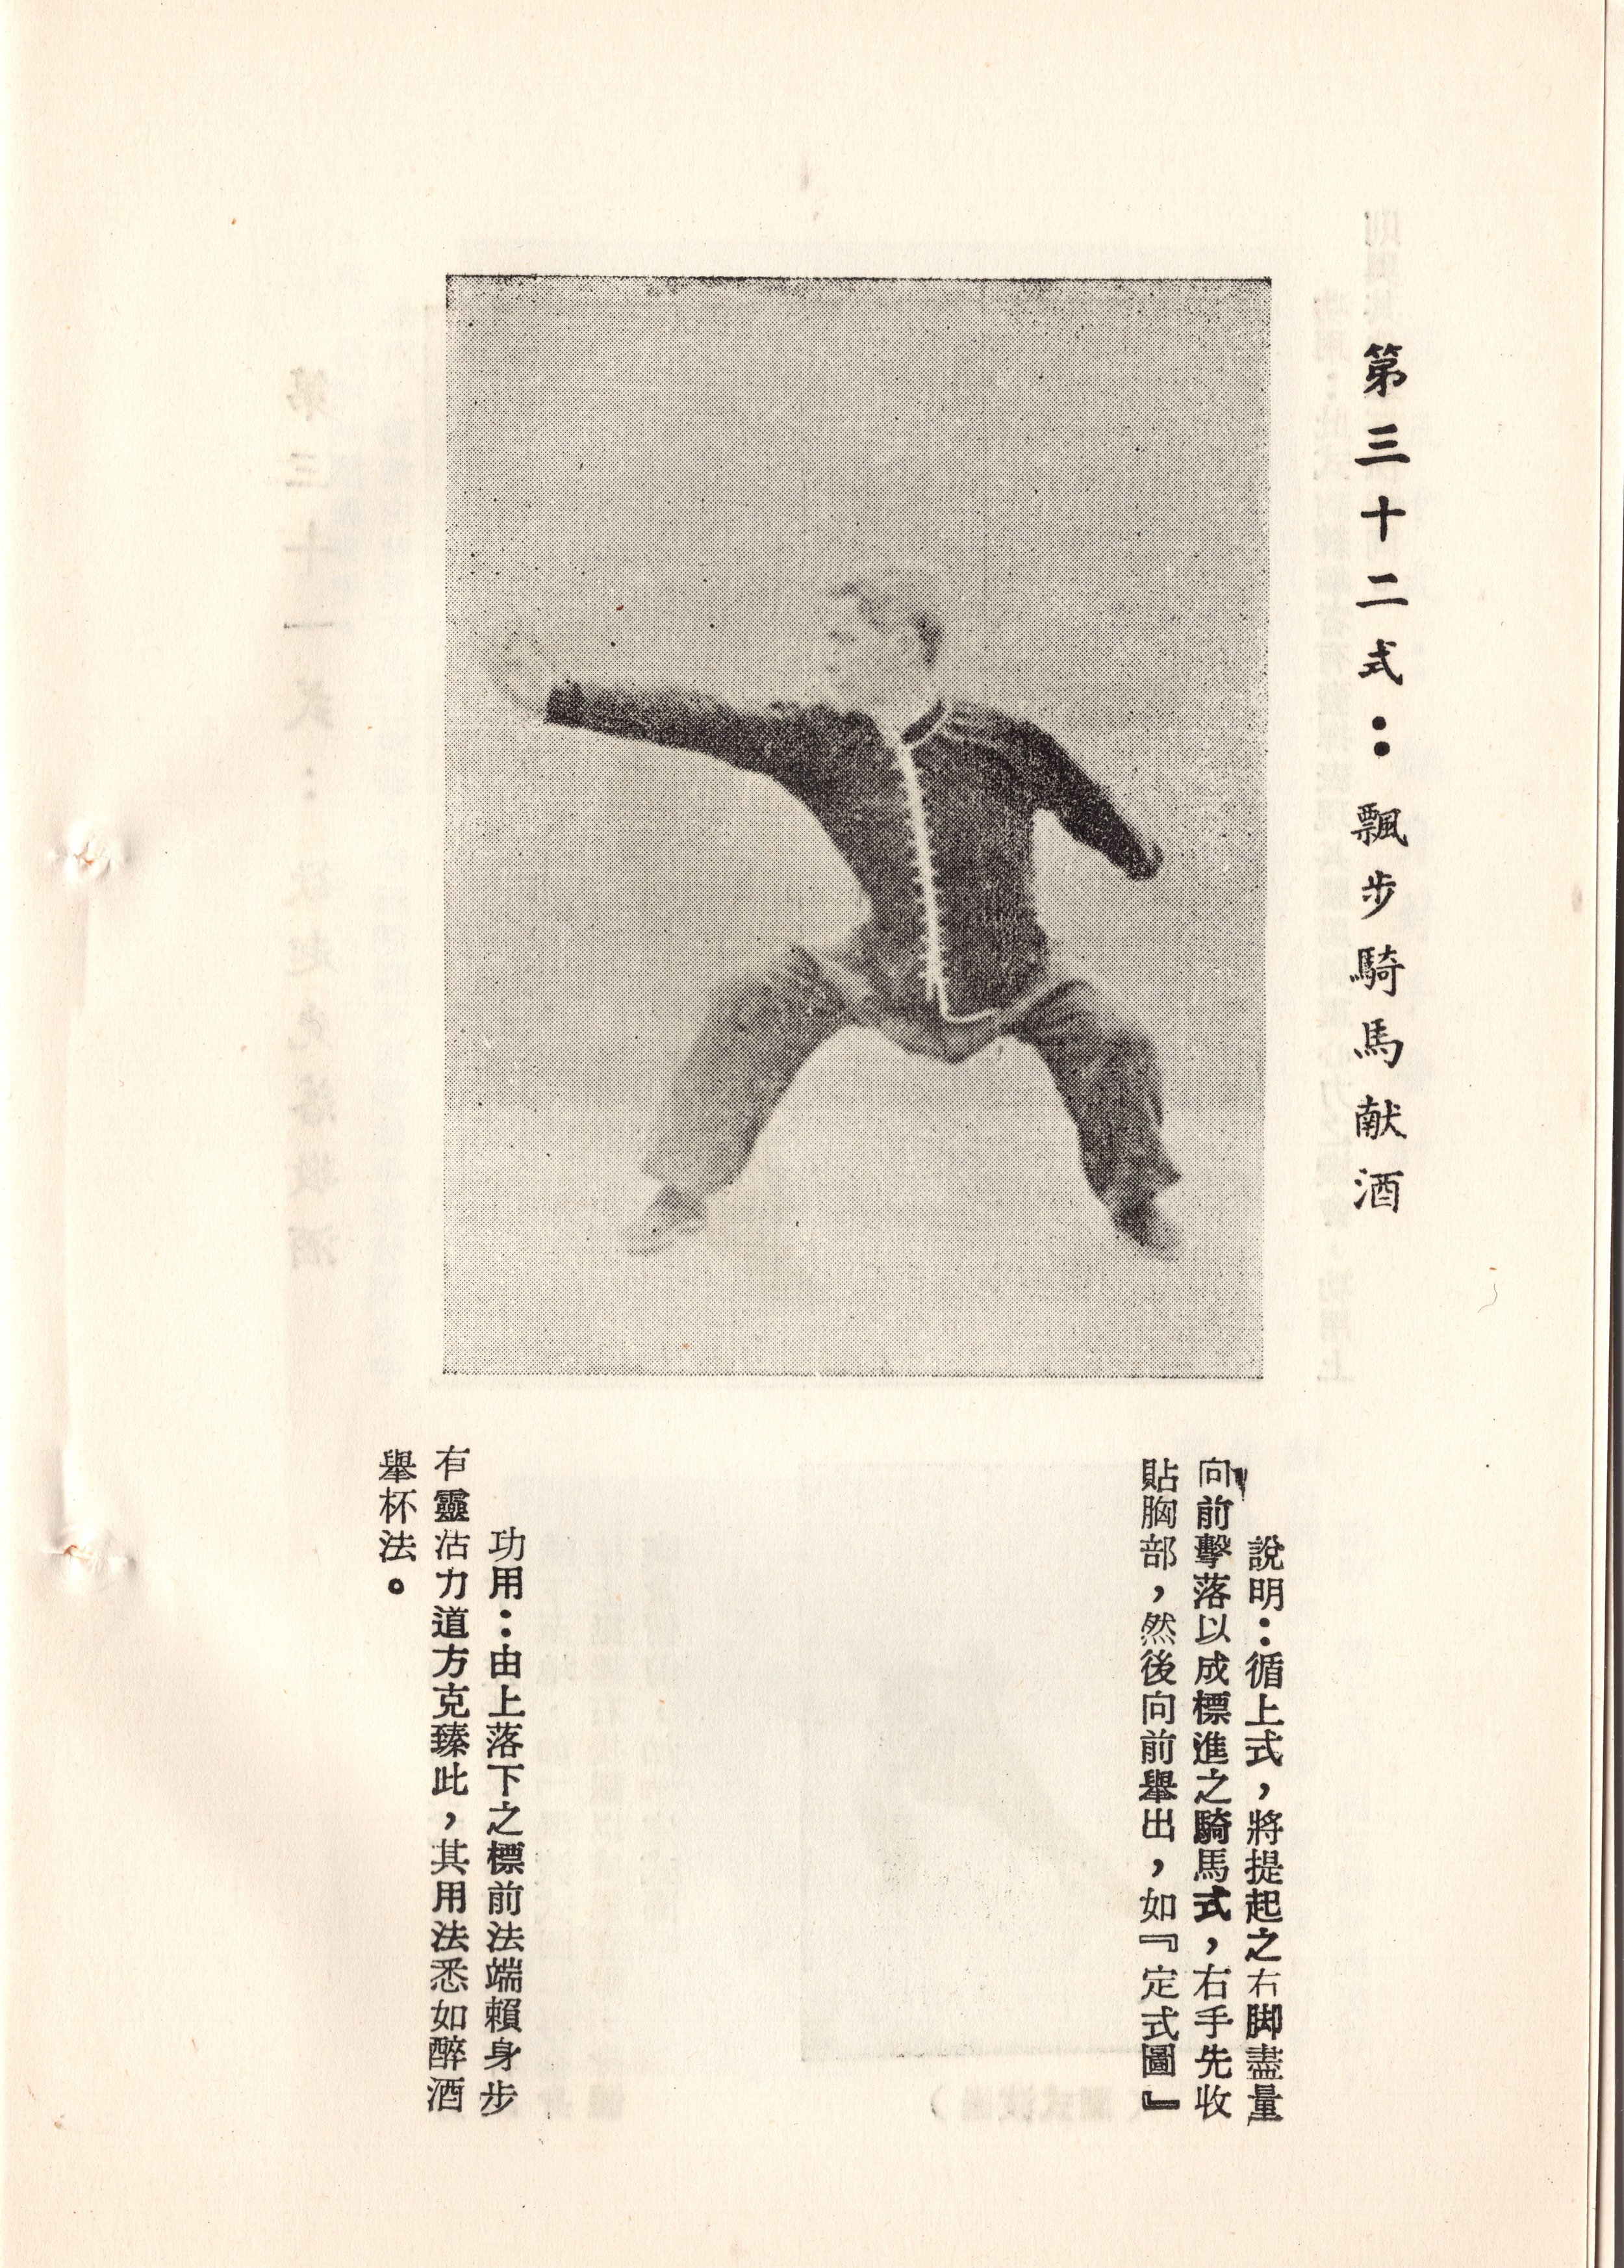 第三十二式：飄步騎馬献酒
說明：循上式，將提起之右脚盡量
向前擊落以成標進之騎馬式，右手先收
貼胸部，然後向前舉出，如『定式圖』
功用：由上落下之標前法端賴身步
有靈活力道方克臻此，其用法悉如醉酒
舉杯法。